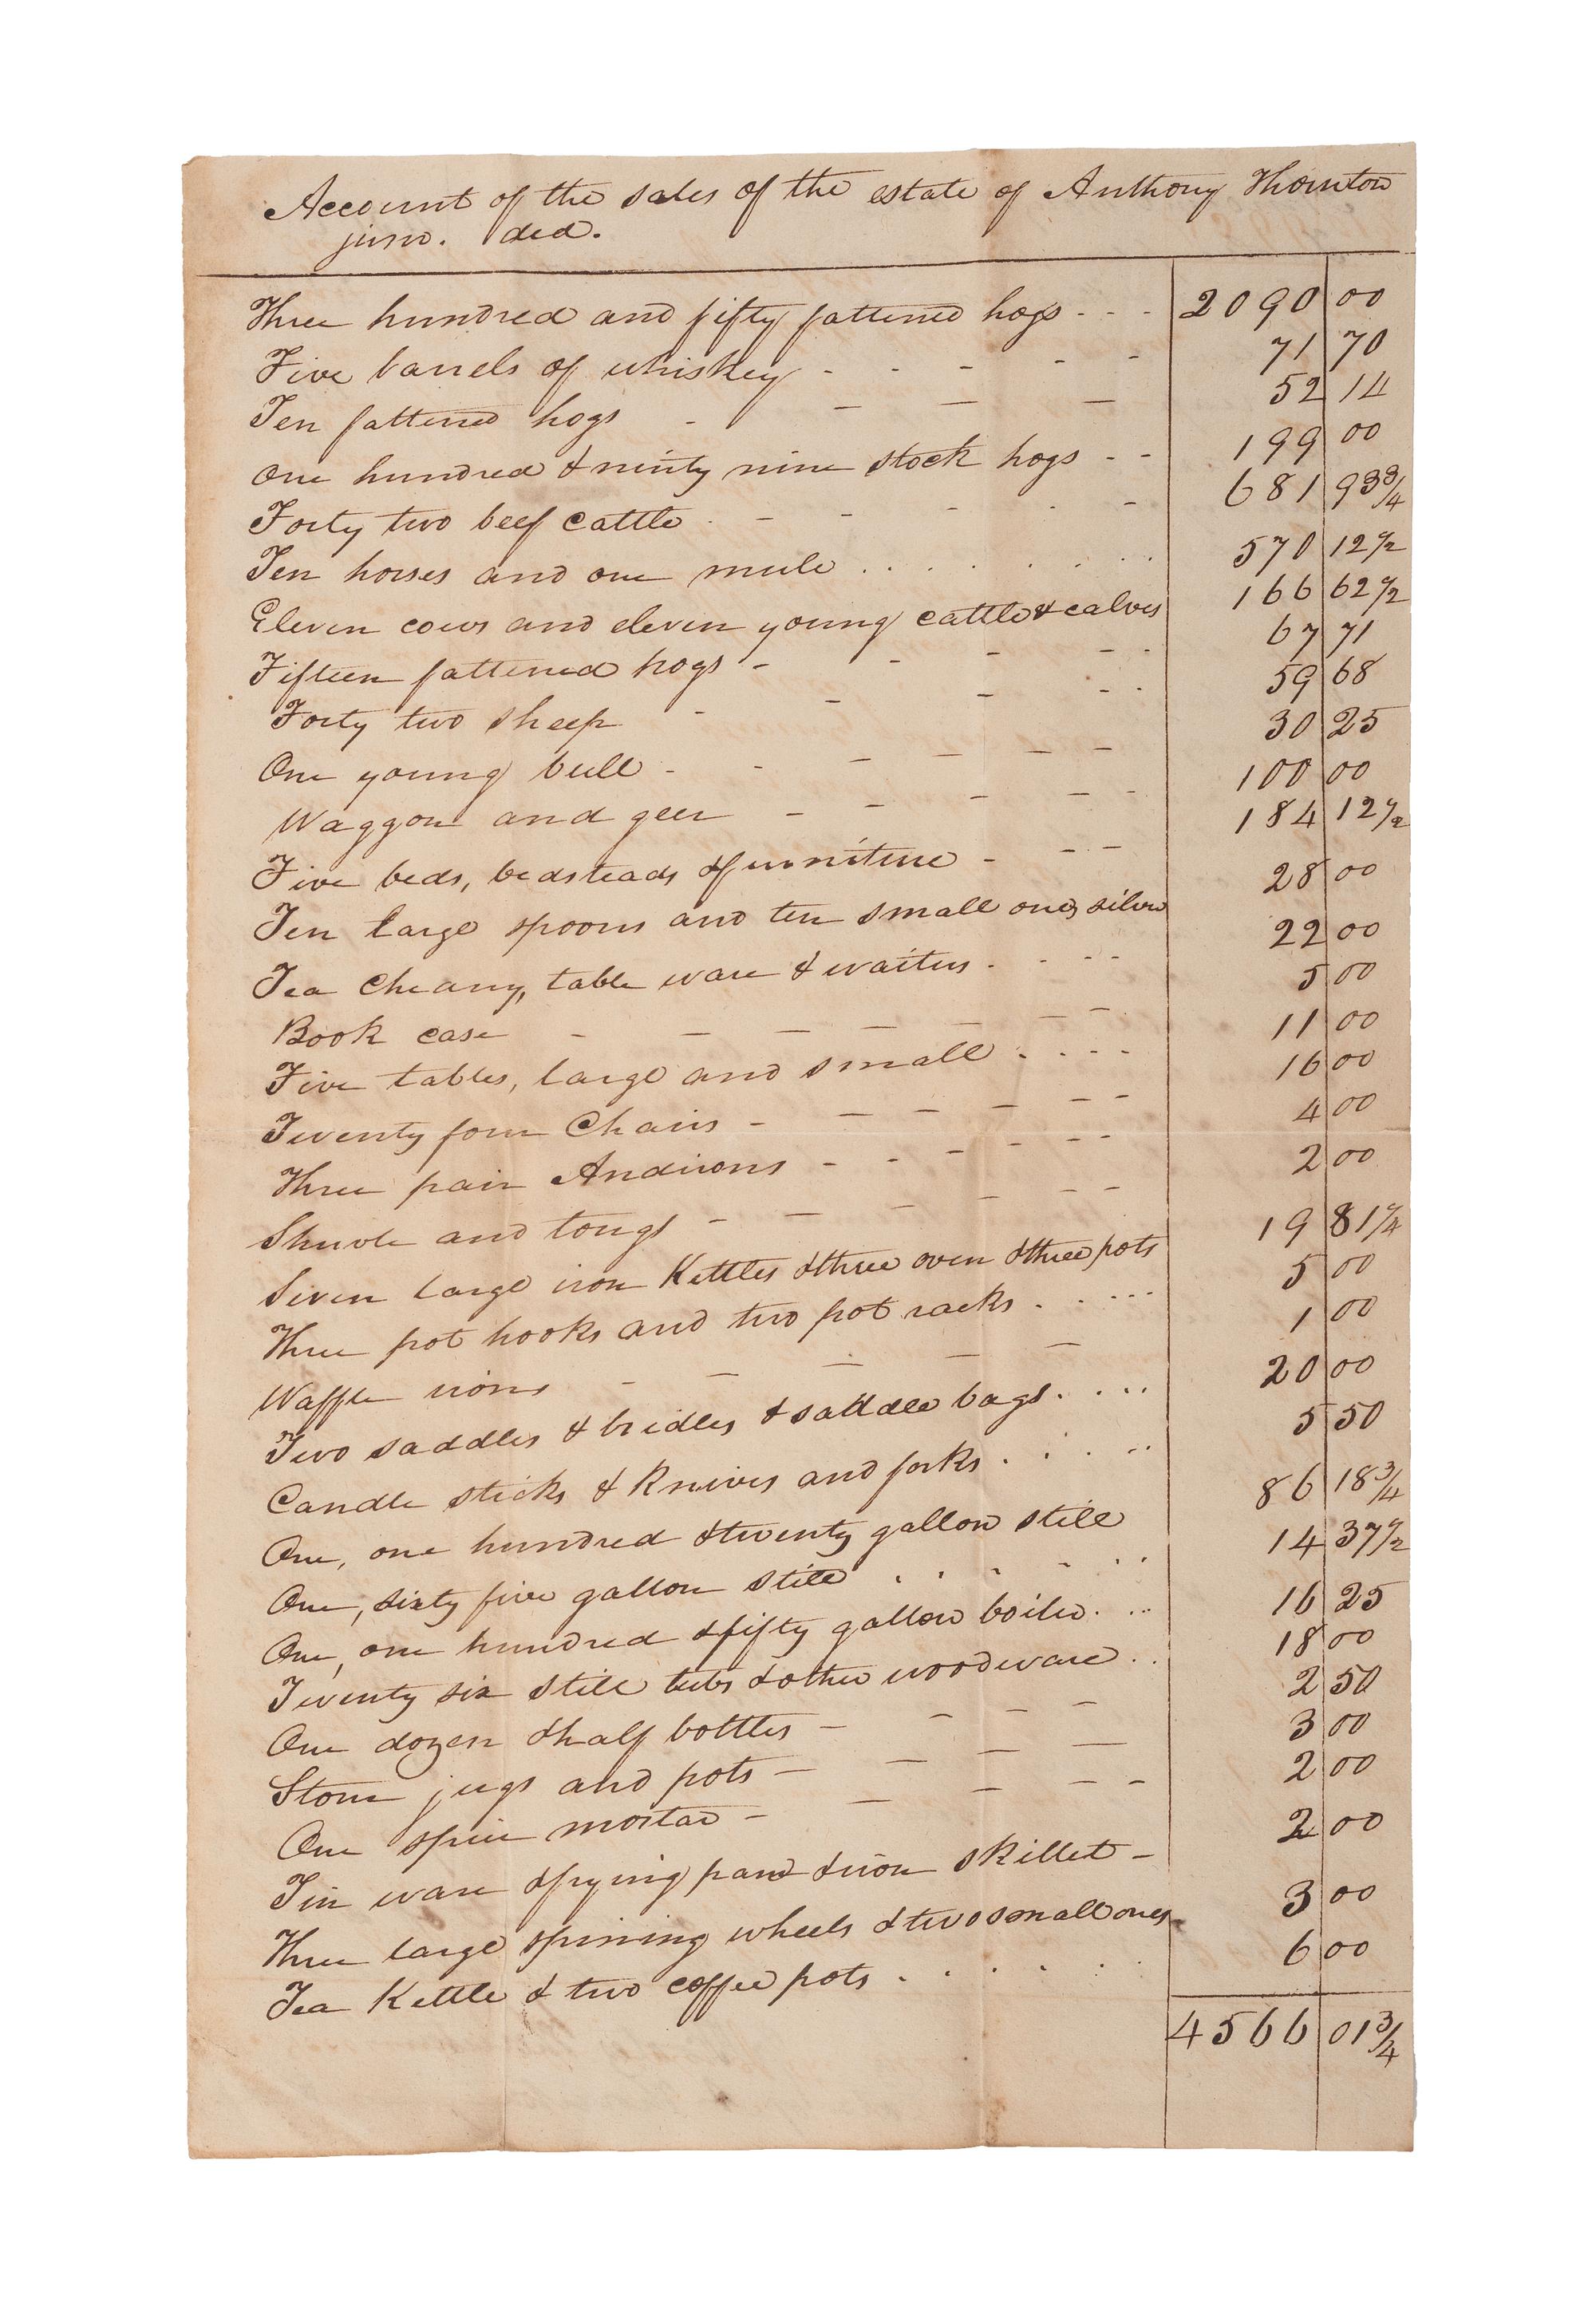 Account of the sales of the estate of Anthony Thornton
junr. decd.
Three hundred and fifty fattened hogs - - - 2090 00
Five barrels of whiskey - - - - - 71 70
Ten fattened hogs - - - - 52 14
One hundred & ninty nine stock hogs - - 199 00
Forty two beef cattle - - - - - 681 93 3/4
Ten horses and one mule . . . . . . . 570 12 1/2
Eleven cows and eleven young cattle & calves 166 62 1/2
Fifteen fattened hogs - - - - - 67 71
Forty two sheep - - - - - 59 68
One young bull - - - - - - 30 25
Waggon and geer - - - - - 100 00
Five beds, bedsteads & furniture - - - 184 12 1/2
Ten large spoons and ten small ones silver 28 00
Tea Cheany, table ware & waiters - - - - 22 00
Book case - - - - - - - 5 00
Five tables, large and small . . . . 11 00
Twenty four Chairs - - - - - - 16 00
Three pair Andirons - - - - - - 4 00
Shuvle and tongs - - - - - - 2 00
Seven large iron Kettles & three oven & three pots 19 81 1/4
Three pot hooks and two pot racks . . . . . 5 00
Waffle irons - - - - - 1 00
Two saddles & bridles & saddle bags . . . . 20 00
Candle sticks & Knives and forks . . . . . 5 50
One, one hundred & twenty gallon still 86 18 3/4
One, sixty five gallon still . . . . . . 14 37 1/2
One, one hundred & fifty gallon boiler . . . 16 25
Twenty six still tubs & other woodware . . 18 00
One dozen & half bottles - - - - 2 50
Stone jugs and pots - - - - 3 00
One spice mortar - - - - - 2 00
Tin ware & frying pan & iron skillet - 2 00
Three large spining wheels & two small ones 3 00
Tea Kettle & two coffee pots . . . . . . 6 00
4566 01 3/4